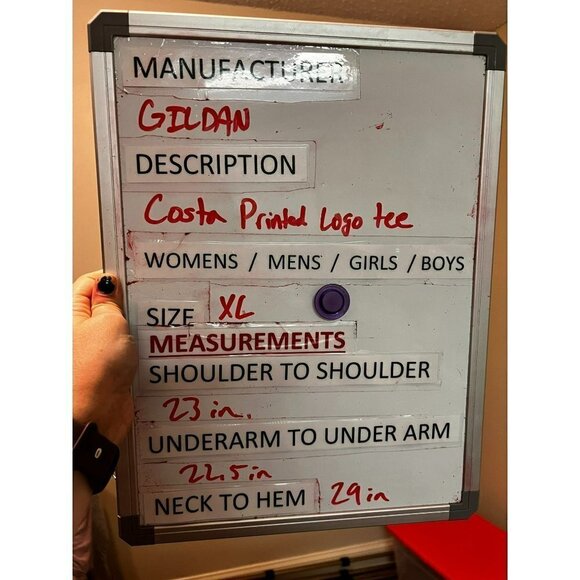 MANUFACTURER
GILDAN
DESCRIPTION
Costa Printed Logo tee
WOMENS / MENS / GIRLS / BOYS
SIZE XL
MEASUREMENTS
SHOULDER TO SHOULDER
23 in.
UNDERARM TO UNDER ARM
22.5 in
NECK TO HEM 29 in